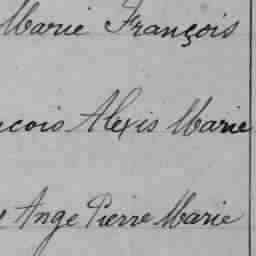 Marie François
çois Alexis Marie
Ange Pierre Marie